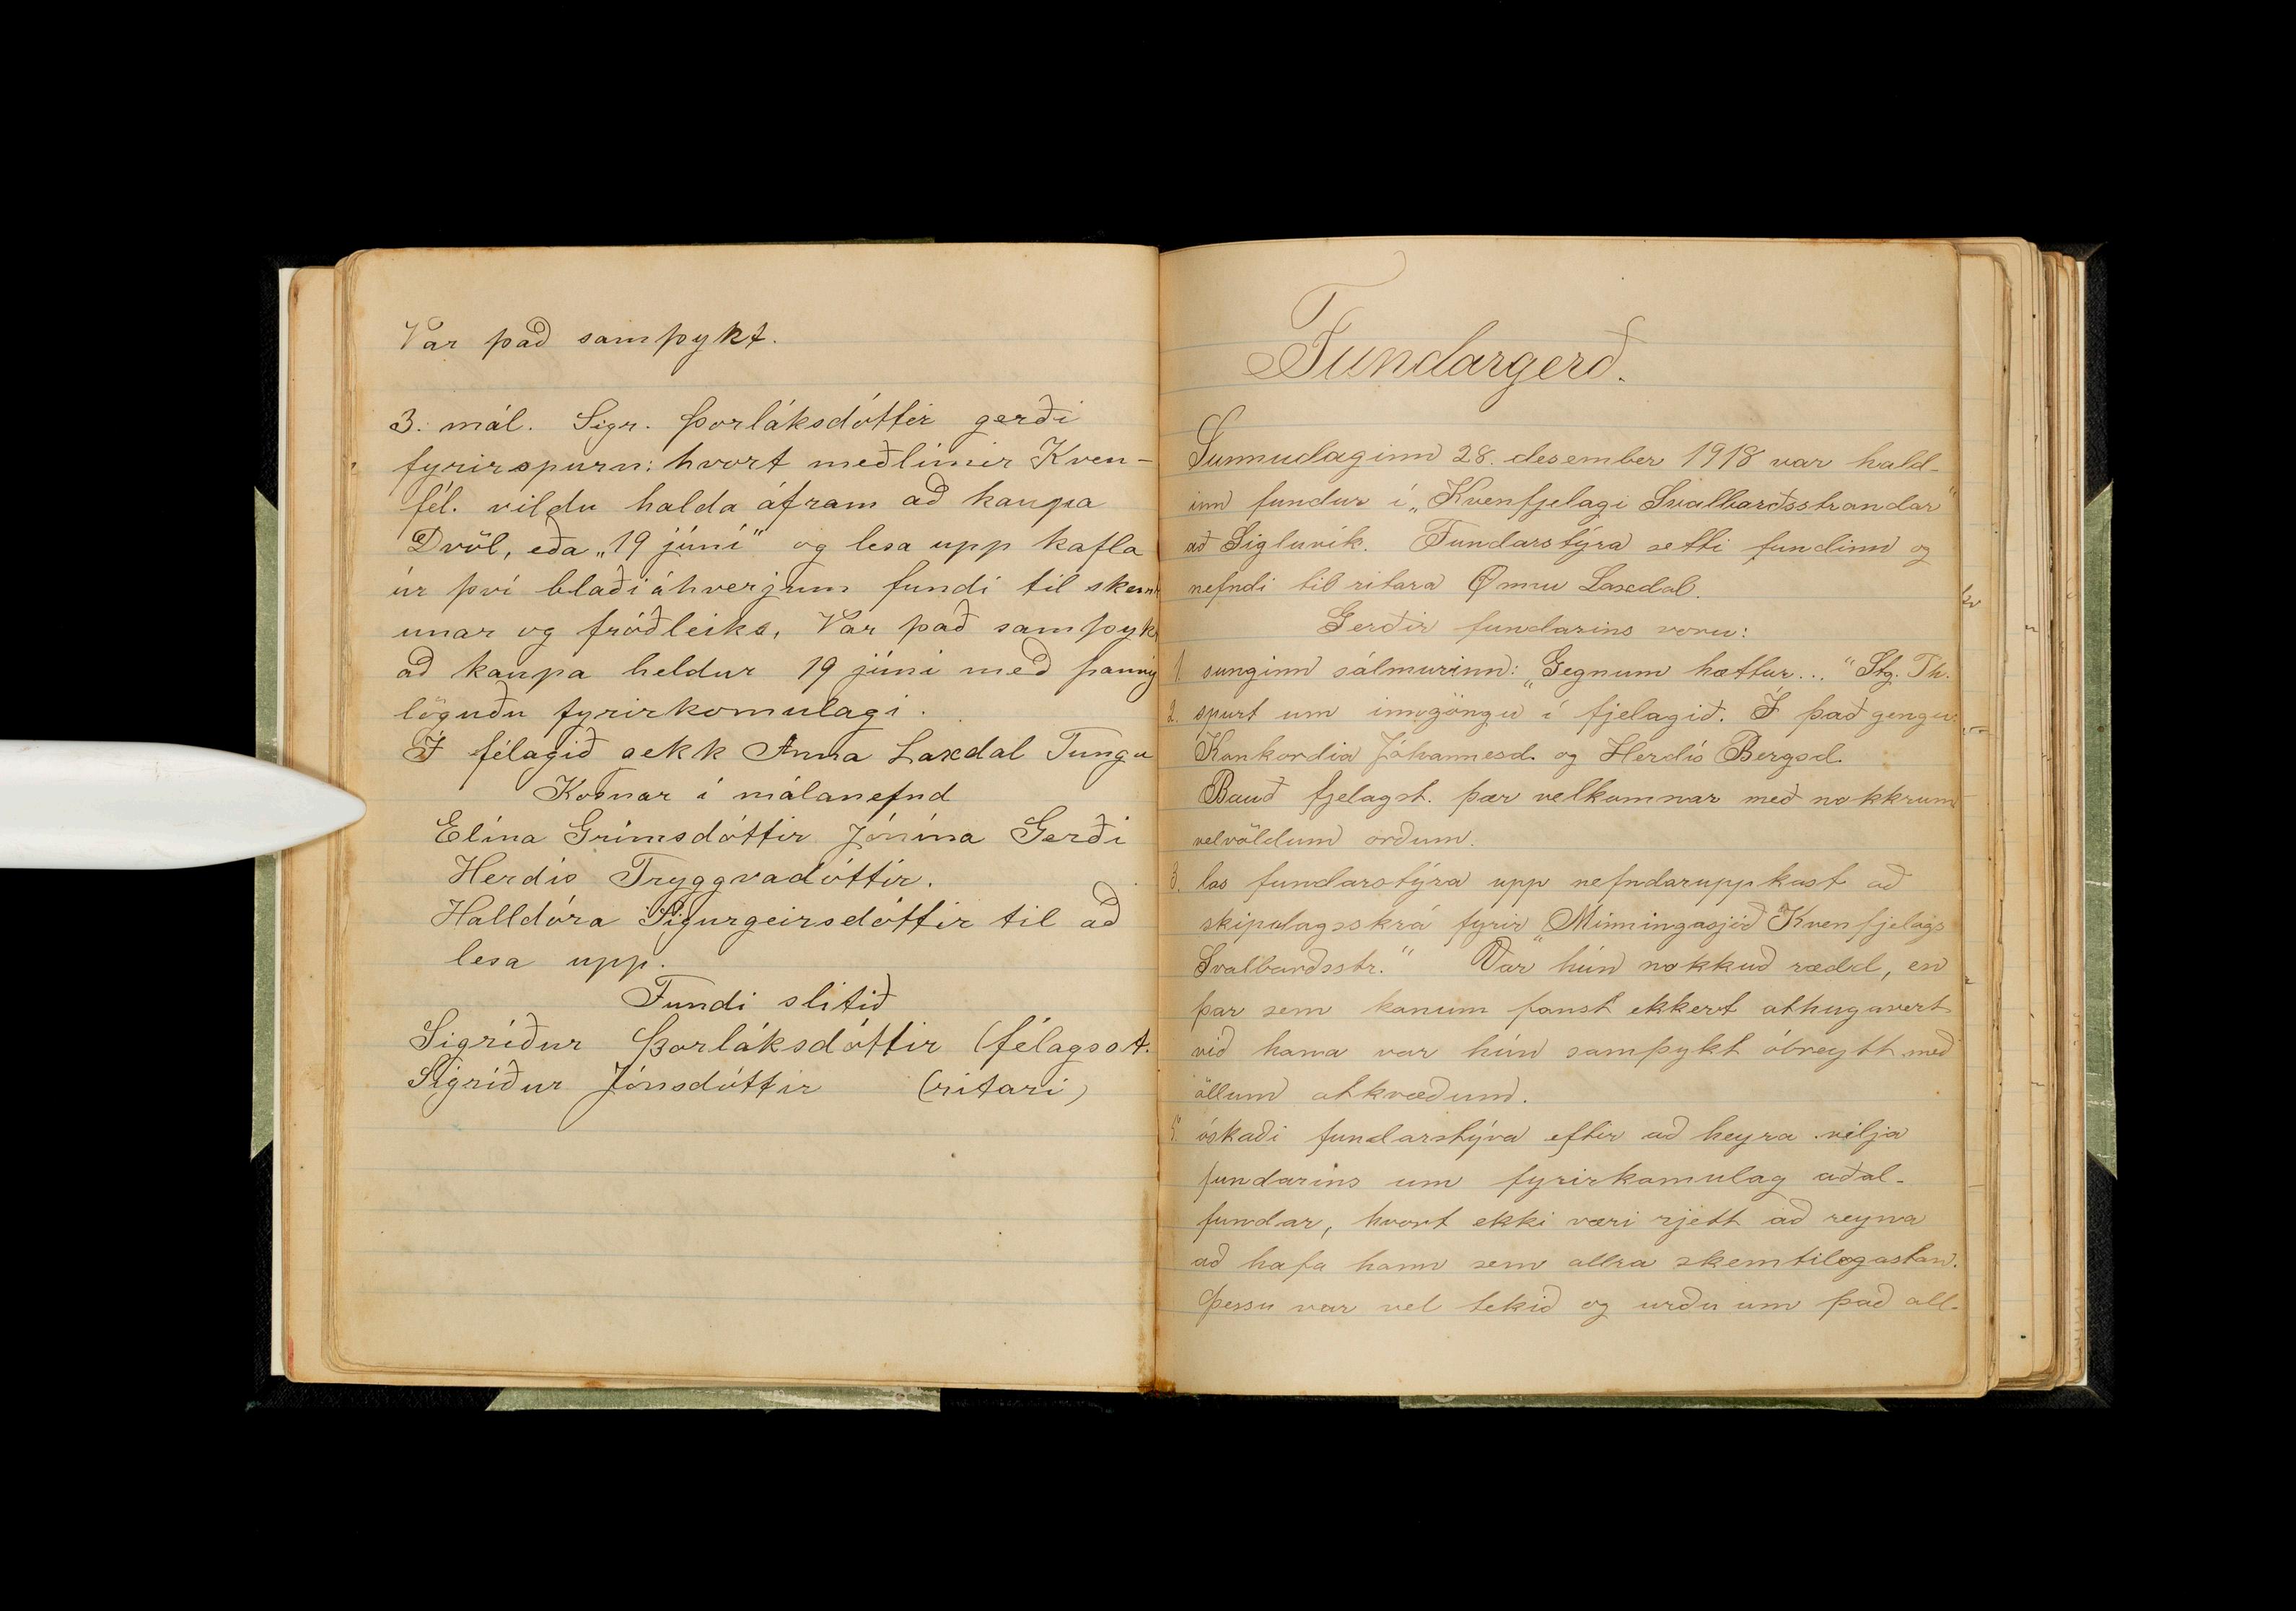 Var það samþykt.
3. mál. Sigr. Þorláksdóttir gerði
fyrirspurn: hvort meðlimir Kven-
fél. vildu halda áfram að kaupa
Dvöl, eða „19 júní" og lesa upp kafla
úr því blaði á hverjum fundi til skemt
unar og fróðleiks, Var það samþyk
að kaupa heldur 19 júni með þannig
löguðu fyrirkomulagi.
Í félagið gekk Anna Laxdal Tungu
Kosnar í málanefnd
Elína Grímsdóttir Jónína Gerði
Herdís Tryggvadóttir.
Halldóra Sigurgeirsdóttir til að
lesa upp.
Fundi slitið
Sigríður Þorláksdóttir (félagsst.
Sigríður Jónsdóttir (ritari)
Fundargerð.
Sunnudaginn 28. desember 1918 var hald-
inn fundur í „Kvenfjelagi Svalbarðsstrandar"
að Sigluvík. Fundarstýra setti fundinn og
nefndi til ritara Önnu Laxdal.
Gerðir fundarins voru:
1. sunginn sálmurinn: „Gegnum hættur..." Stg. Th.
2. spurt um inngöngu í fjelagið. Í það gengu:
Konkordia Jóhannesd. og Herdís Bergsd.
Bauð fjelagst. þær velkomnar með nokkrum
velvöldum orðum.
3. las fundarstýra upp nefndaruppkast að
skipulagsskrá fyrir „Minningasjóð Kvenfjelags
Svalbarðsstr." Var hún nokkuð rædd, en
þar sem konum fanst ekkert athugavert
við hana var hún samþykt óbreytt með
öllum atkvæðum.
óskaði fundarstýra eftir að heyra vilja
fundarins um fyrirkomulag aðal-
fundar, hvort ekki væri rjett að reyna
að hafa hann sem allra skemtilegastan.
Þessu var vel tekið og urðu um það all-